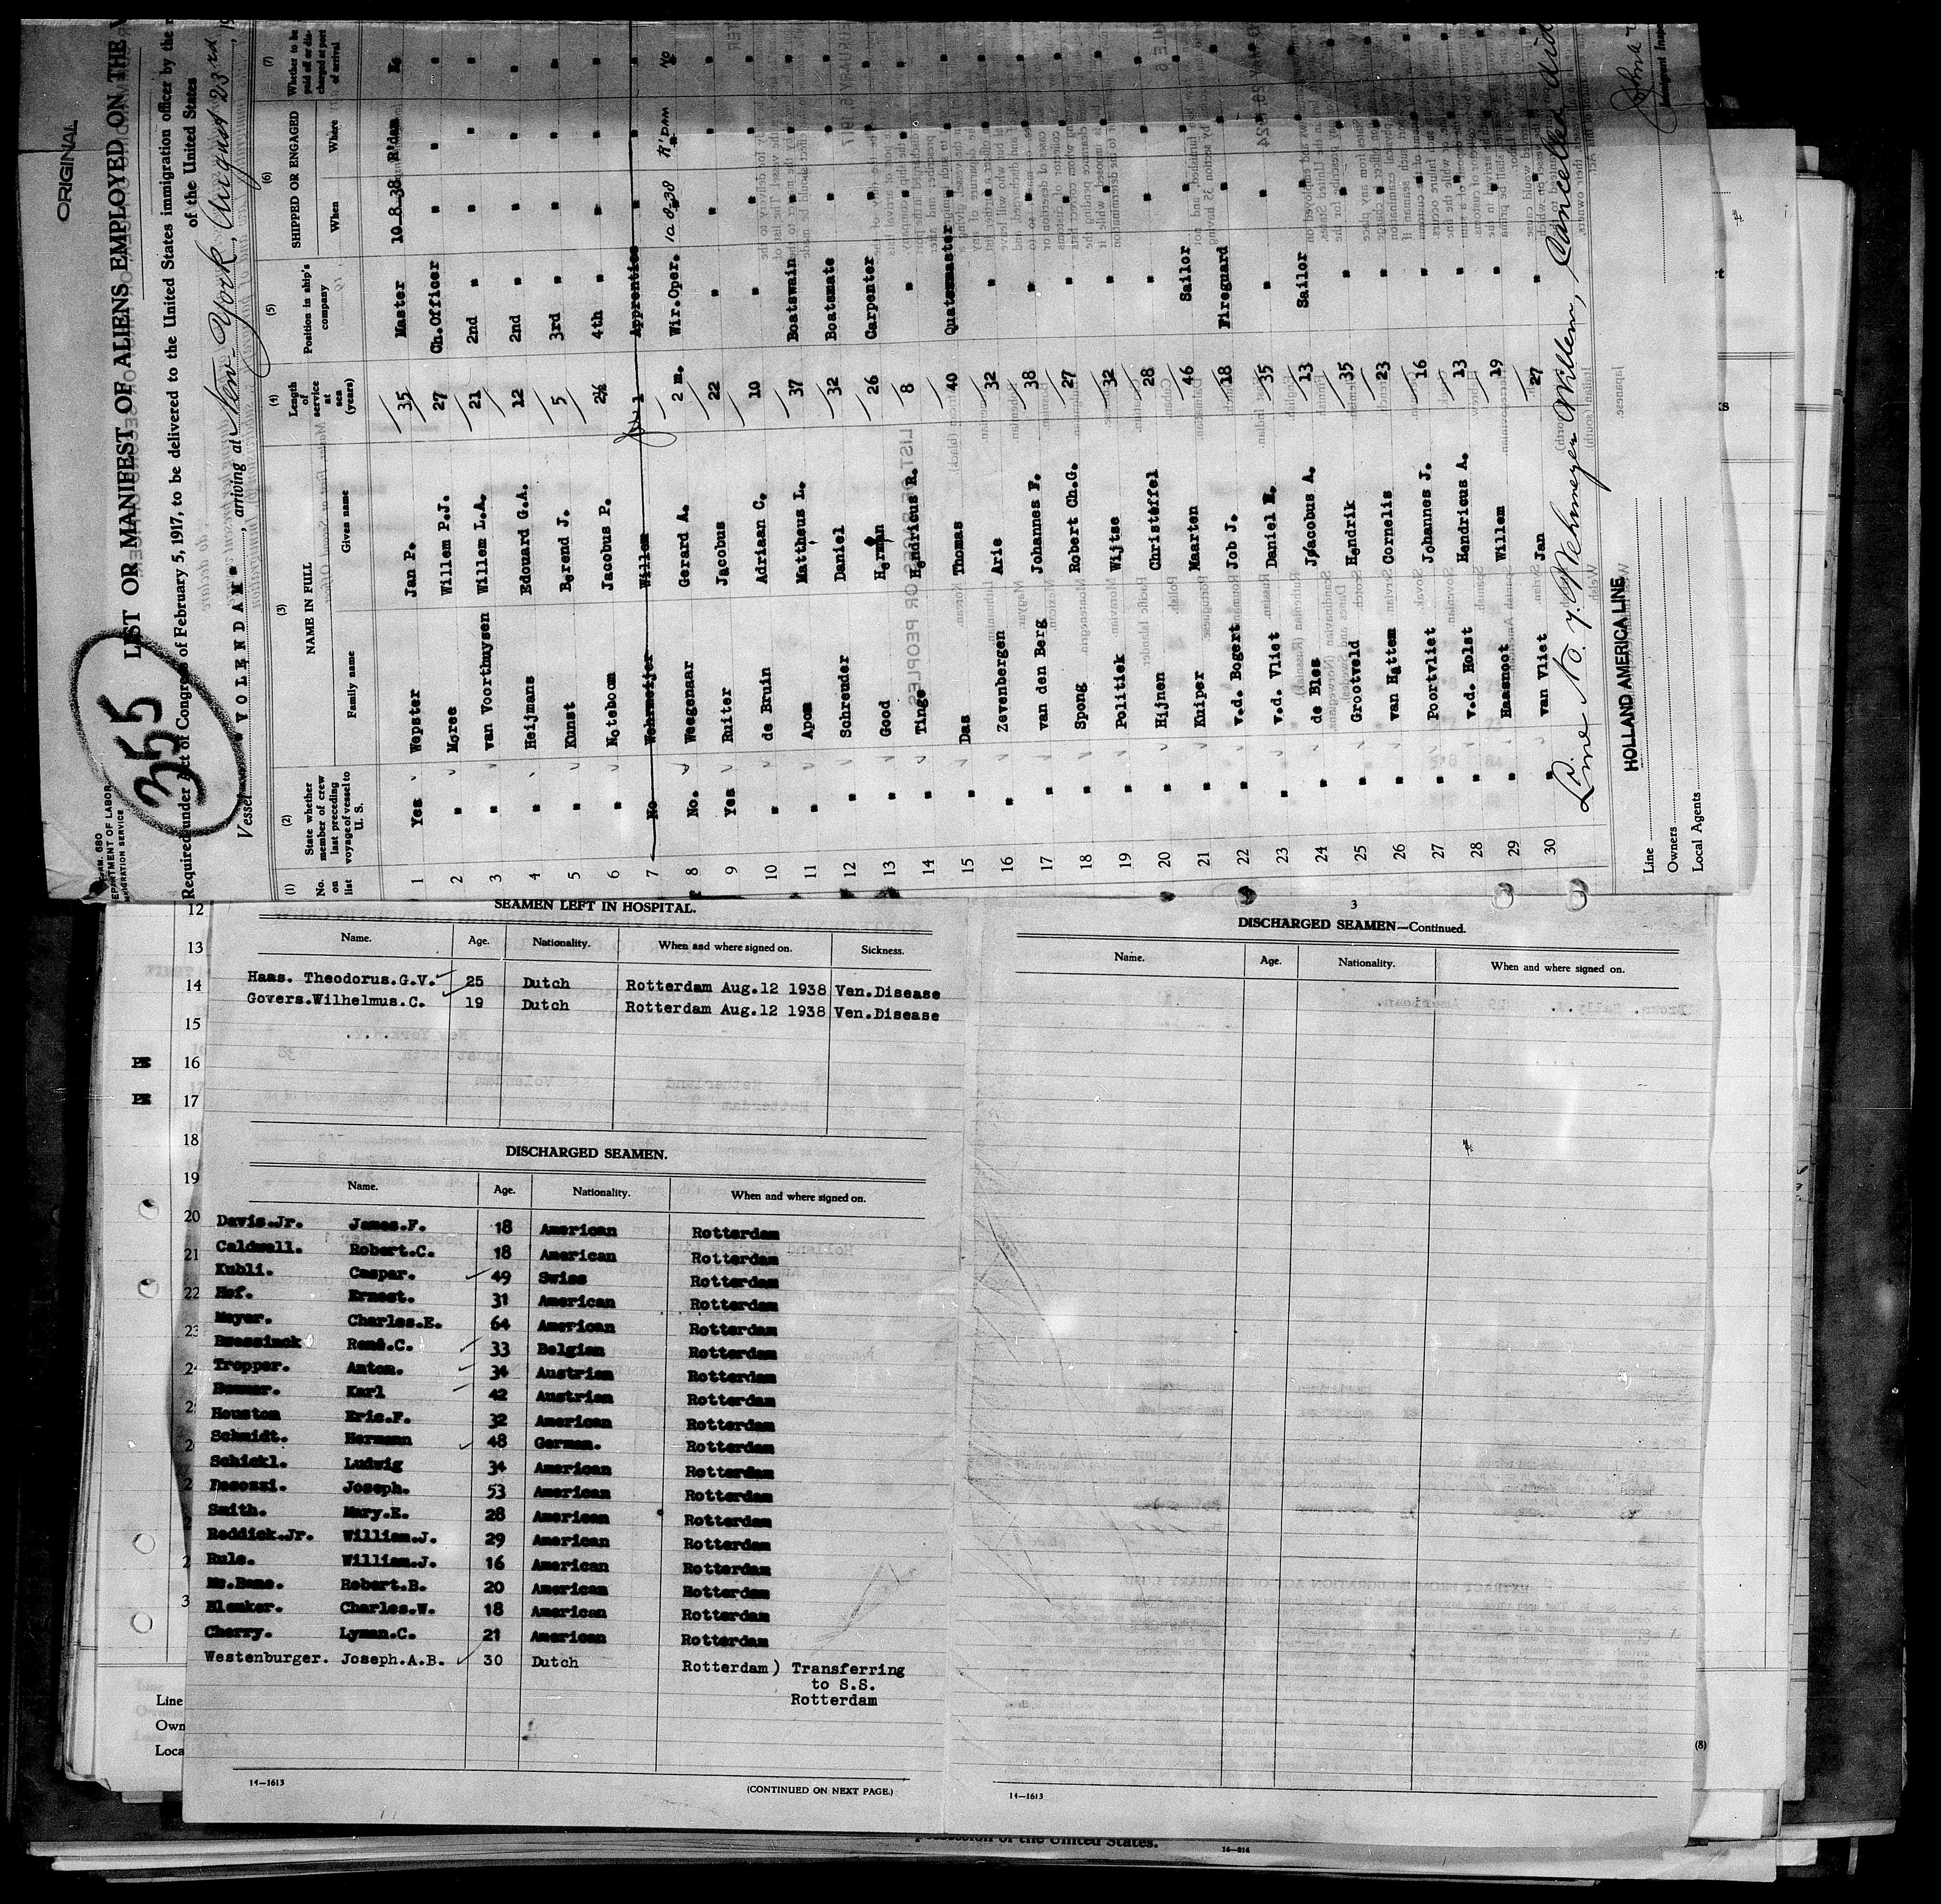 ORIGINAL
355
LIST OR MANIFEST OF ALIENS EMPLOYED ON THE
Required under Act of Congress of February 5, 1917, to be delivered to the United States immigration officer by the
of the United States
Vessel VOLENDAM, arriving at New-York, August 23rd, 19
(1) (2) (3) (4) (5) (6) (7)
No. on list State whether member of crew last preceding voyage of vessel to U. S. NAME IN FULL Family name Given name Length of service at sea (years) Position in ship's company SHIPPED OR ENGAGED When Where Whether to be paid off or discharged at port of arrival
1 Yes Wepster Jan P. 35 Master 10-8-38 R'dam
2 " Moree Willem P.J. 27 Ch.Officer " " "
3 " van Voorthuysen Willem L.A. 21 2nd " " " "
4 " Heijmans Edouard G.A. 12 2nd " " " "
5 " Kunst Berend J. 5 3rd " " " "
6 " Noteboom Jacobus P. 2½ 4th " " " "
7 No Wehrmeijer Willem 1 Apprentice " " "
8 No. Weegenaar Gerard A. 2 m. Wir.Oper. 10-8-38 R'dam no
9 Yes Ruiter Jacobus 22 " " " "
10 " de Bruin Adriaan C. 10 " " " "
11 " Apon Mattheus L. 37 Boatswain " " "
12 " Schreuder Daniel 32 Boatsmate " " "
13 " Good Herman 26 Carpenter " " "
14 " Tinge Hendricus R. 8 " " " "
15 " Das Thomas 40 Quatermaster " " "
16 " Zevenbergen Arie 32 " " " "
17 " van den Berg Johannes F. 38 " " " "
18 " Spong Robert Ch.G. 27 " " " "
19 " Politiek Wijtse 32 " " " "
20 " Hijnen Christeffel 28 " " " "
21 " Kuiper Maarten 46 Sailor " " "
22 " v.d. Bogert Job J. 18 Fireguard " " "
23 " v.d. Vliet Daniel M. 35 " " " "
24 " de Bles Jacobus A. 13 Sailor " " "
25 " Grootveld Hendrik 35 " " " "
26 " van Hattem Cornelis 23 " " " "
27 " Poortvliet Johannes J. 16 " " " "
28 " v.d. Holst Hendricus A. 13 " " " "
29 " Haasnoot Willem 19 " " " "
30 " van Vliet Jan 27 " " " "
Line No. 7. Wehrmeyer Willem, Cancelled
Line HOLLAND AMERICA LINE
Owners
Local Agents
12
13
14
15
16
17
18
19
20
21
22
23
SEAMEN LEFT IN HOSPITAL.
Name. Age. Nationality. When and where signed on. Sickness.
Haas. Theodorus.G.V. 25 Dutch Rotterdam Aug.12 1938 Ven.Disease
Govers.Wilhelmus.C. 19 Dutch Rotterdam Aug.12 1938 Ven.Disease
DISCHARGED SEAMEN.
Name. Age. Nationality. When and where signed on.
Davis.Jr. James.F. 18 American Rotterdam
Caldwell. Robert.C. 18 American Rotterdam
Kubli. Caspar. 49 Swiss Rotterdam
Hof. Ernest. 31 American Rotterdam
Meyer. Charles.E. 64 American Rotterdam
René.C. 33 Belgian Rotterdam
Tropper. Anton. 34 Austrian Rotterdam
Karl 42 Austrian Rotterdam
Houston Eric.F. 32 American Rotterdam
Schmidt. Hermann 48 German. Rotterdam
Schickl. Ludwig 34 American Rotterdam
Joseph. 53 American Rotterdam
Smith. Mary.E. 28 American Rotterdam
Reddick.Jr. William.J. 29 American Rotterdam
Rule. William.J. 16 American Rotterdam
Mc.Bane. Robert.B. 20 American Rotterdam
Blenker. Charles.W. 18 American Rotterdam
Cherry. Lyman.C. 21 American Rotterdam
Westenburger. Joseph.A.B. 30 Dutch Rotterdam) Transferring
to S.S.
Rotterdam
14—1613 (CONTINUED ON NEXT PAGE.)
3
DISCHARGED SEAMEN—Continued.
Name. Age. Nationality. When and where signed on.
14—1613
Line
Own
Loca
(8)
possession of the United States.